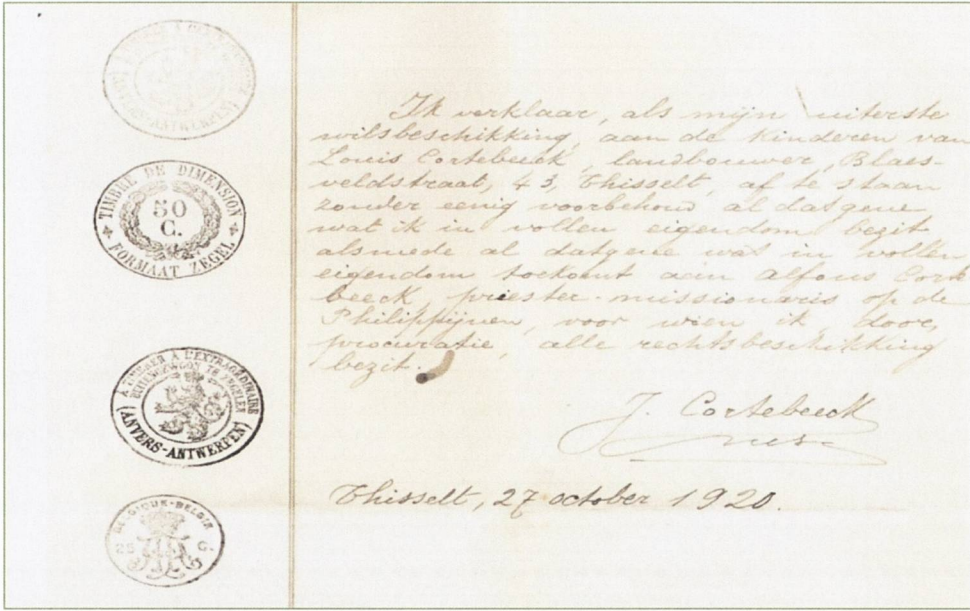 TIMBRE DE DIMENSION
50
C.
FORMAAT ZEGEL
A TIMBRER À L'EXTRAORDINAIRE
BUITENGEWOON TE ZEGELEN
(ANVERS-ANTWERPEN)
BELGIQUE-BELGIË
25 C
Ik verklaar, als mijn uiterste
wilsbeschikking, aan de kinderen van
Louis Cortebeeck, landbouwer, Blaes-
veldstraat, 43, Thisselt, af te staan
zonder eenig voorbehoud al datgene
wat ik in vollen eigendom bezit
alsmede al datgene wat in vollen
eigendom toekomt aan Alfons Corte
beeck, priester-missionaris op de
Philippijnen, voor wien ik, door
procuratie, alle rechtsbeschikking
bezit.
J. Cortebeeck
Thisselt, 27 october 1920.